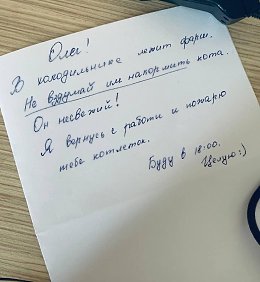 Олег!
В холодильнике лежит фарш.
Не вздумай им накормить кота.
Он несвежий!
Я вернусь с работы и пожарю
тебе котлеток.
Буду в 18:00.
Целую:)